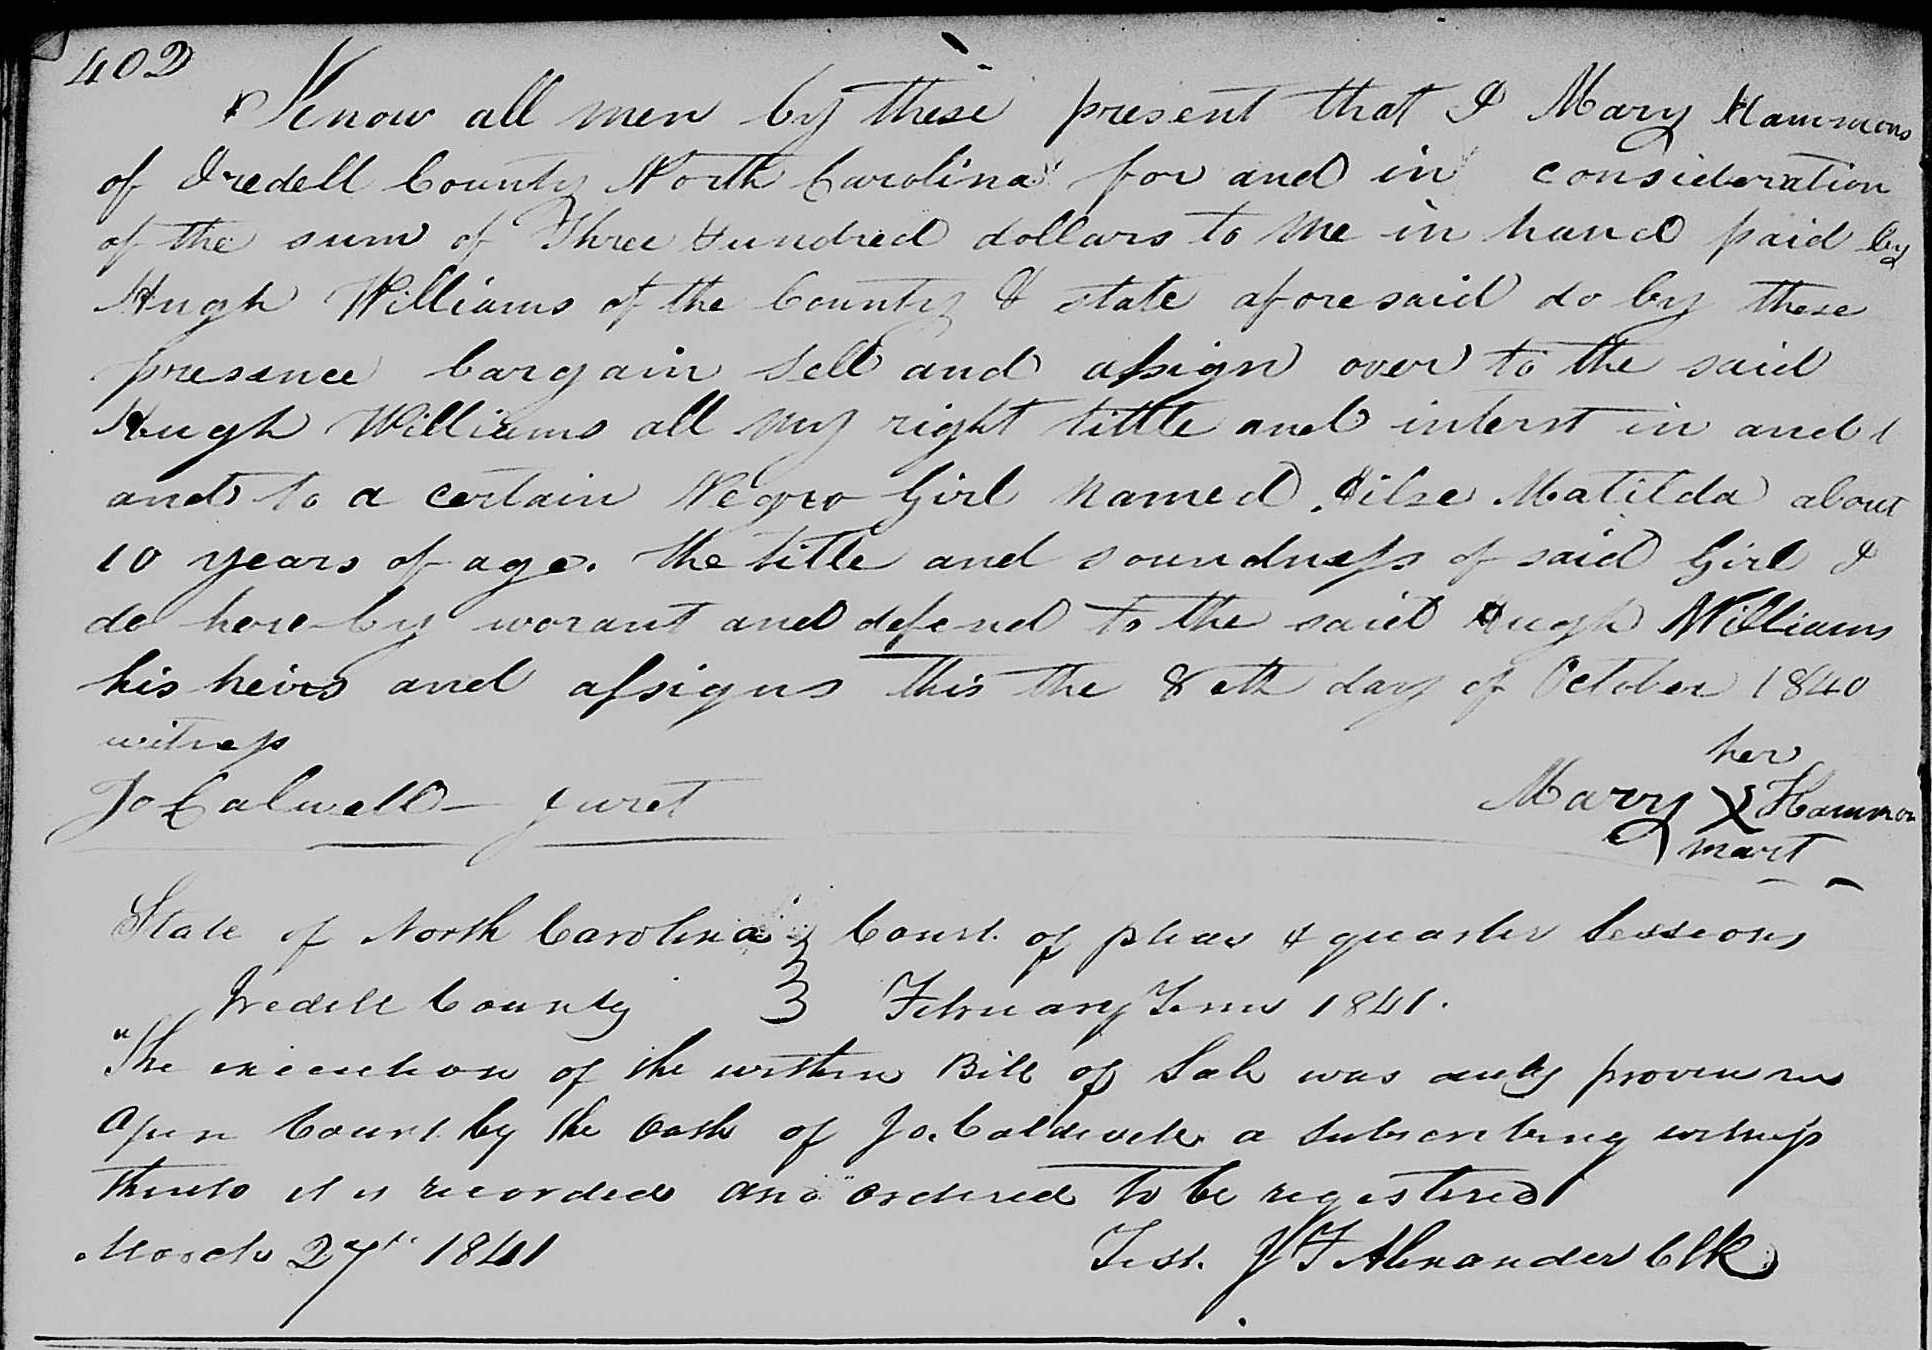 402
Know all men by these present that I Mary Hammons
of Iredell County North Carolina for and in consideration
of the sum of Three Hundred dollars to me in hand paid by
Hugh Williams of the County & state aforesaid do by these
presence bargain Sell and assign over to the said
Hugh Williams all my right tittle and interst in and
and to a certain Negro Girl named Matilda about
10 years of age. The title and soundness of said Girl I
do here-by worant and defend to the said Hugh Williams
his heirs and assigns This the 8 eth day of October 1840
witness
Jo Calwell – Juret
her
Mary X Hammon
mart
State of North Carolina } Court of pleas & quarter Sessions
Iredell County } February Term 1841.
"The execution of the within Bill of Sale was duly proven in
open Court by the oath of Jo. Caldwell a subscribing witness
thereto it is recorded and ordered to be registered
March 27th 1841
Test. J F Alexander Clk